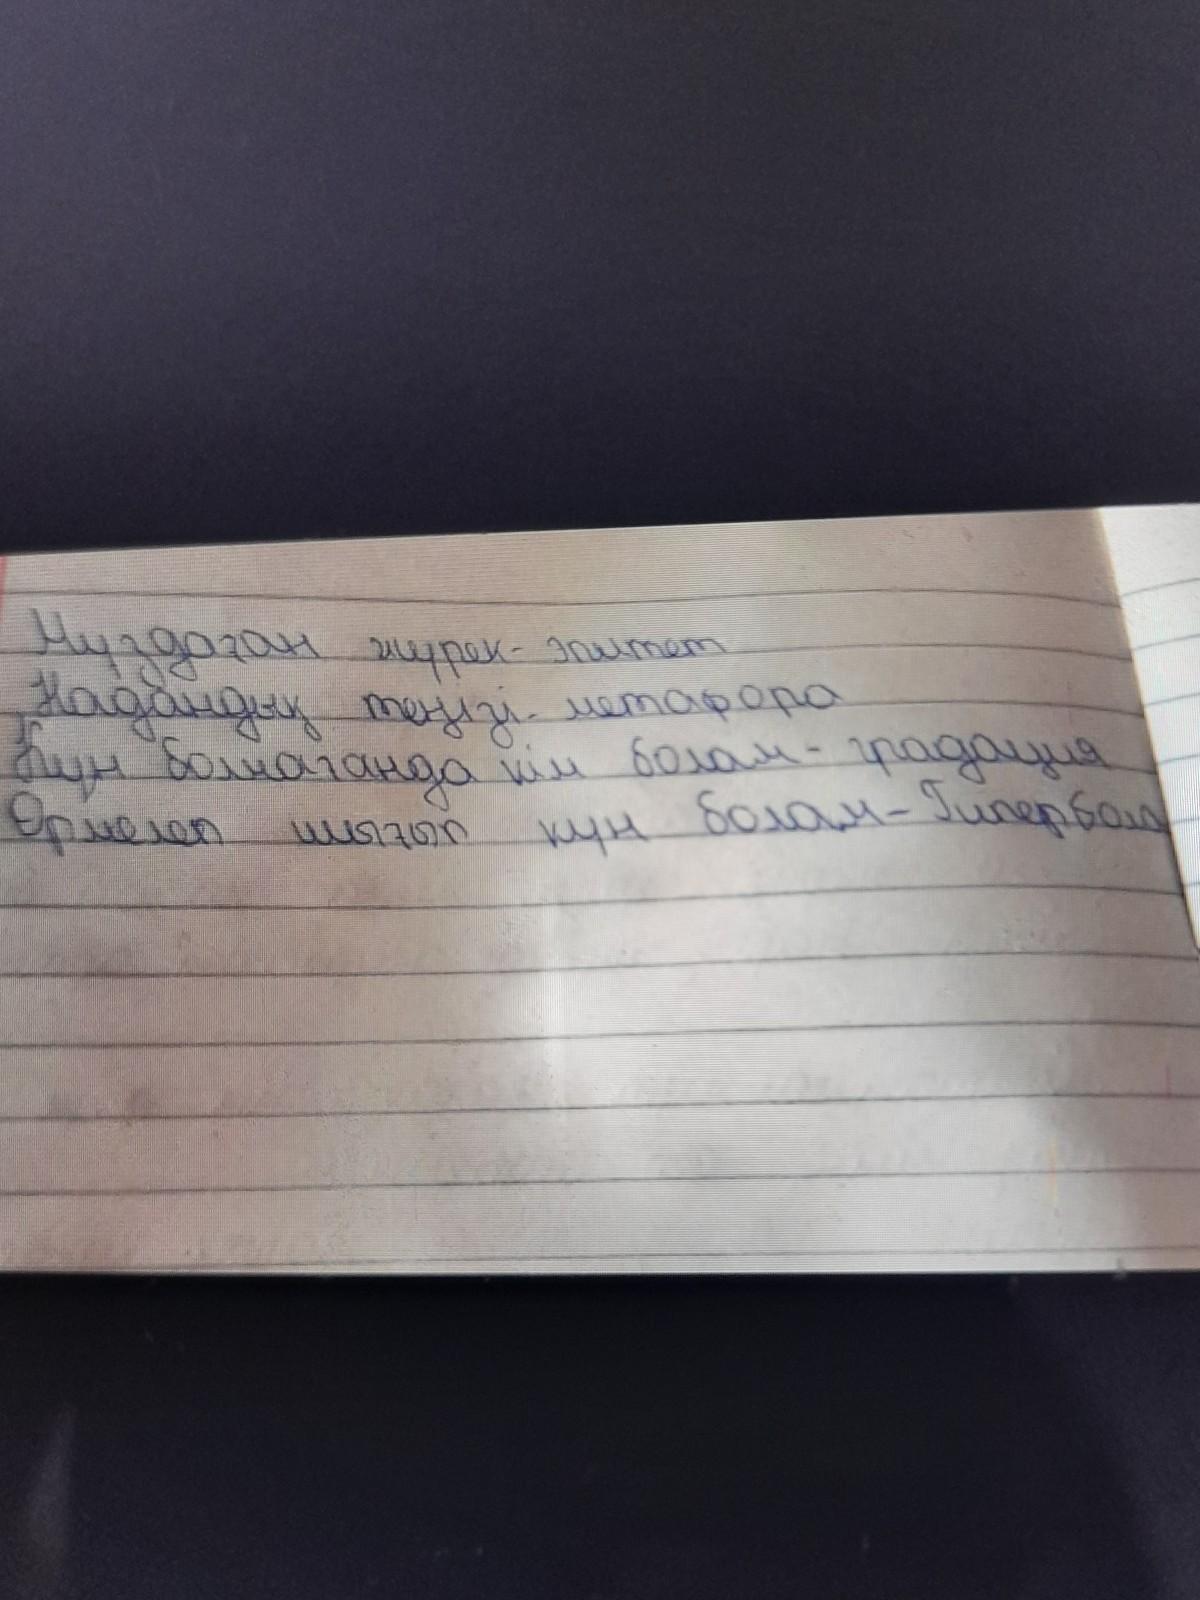 Муздаған жүрек - эпитет
Надандық теңізі - метафора
Күн болмағанда кім болам - градация
Өрмелеп шығып күн болам - Гипербола